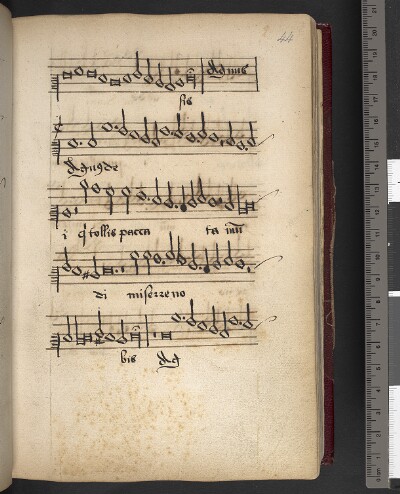 44
Agnus
sis
Agnus de
i q tollis pacca ta mu
di miserreno
bis Ag